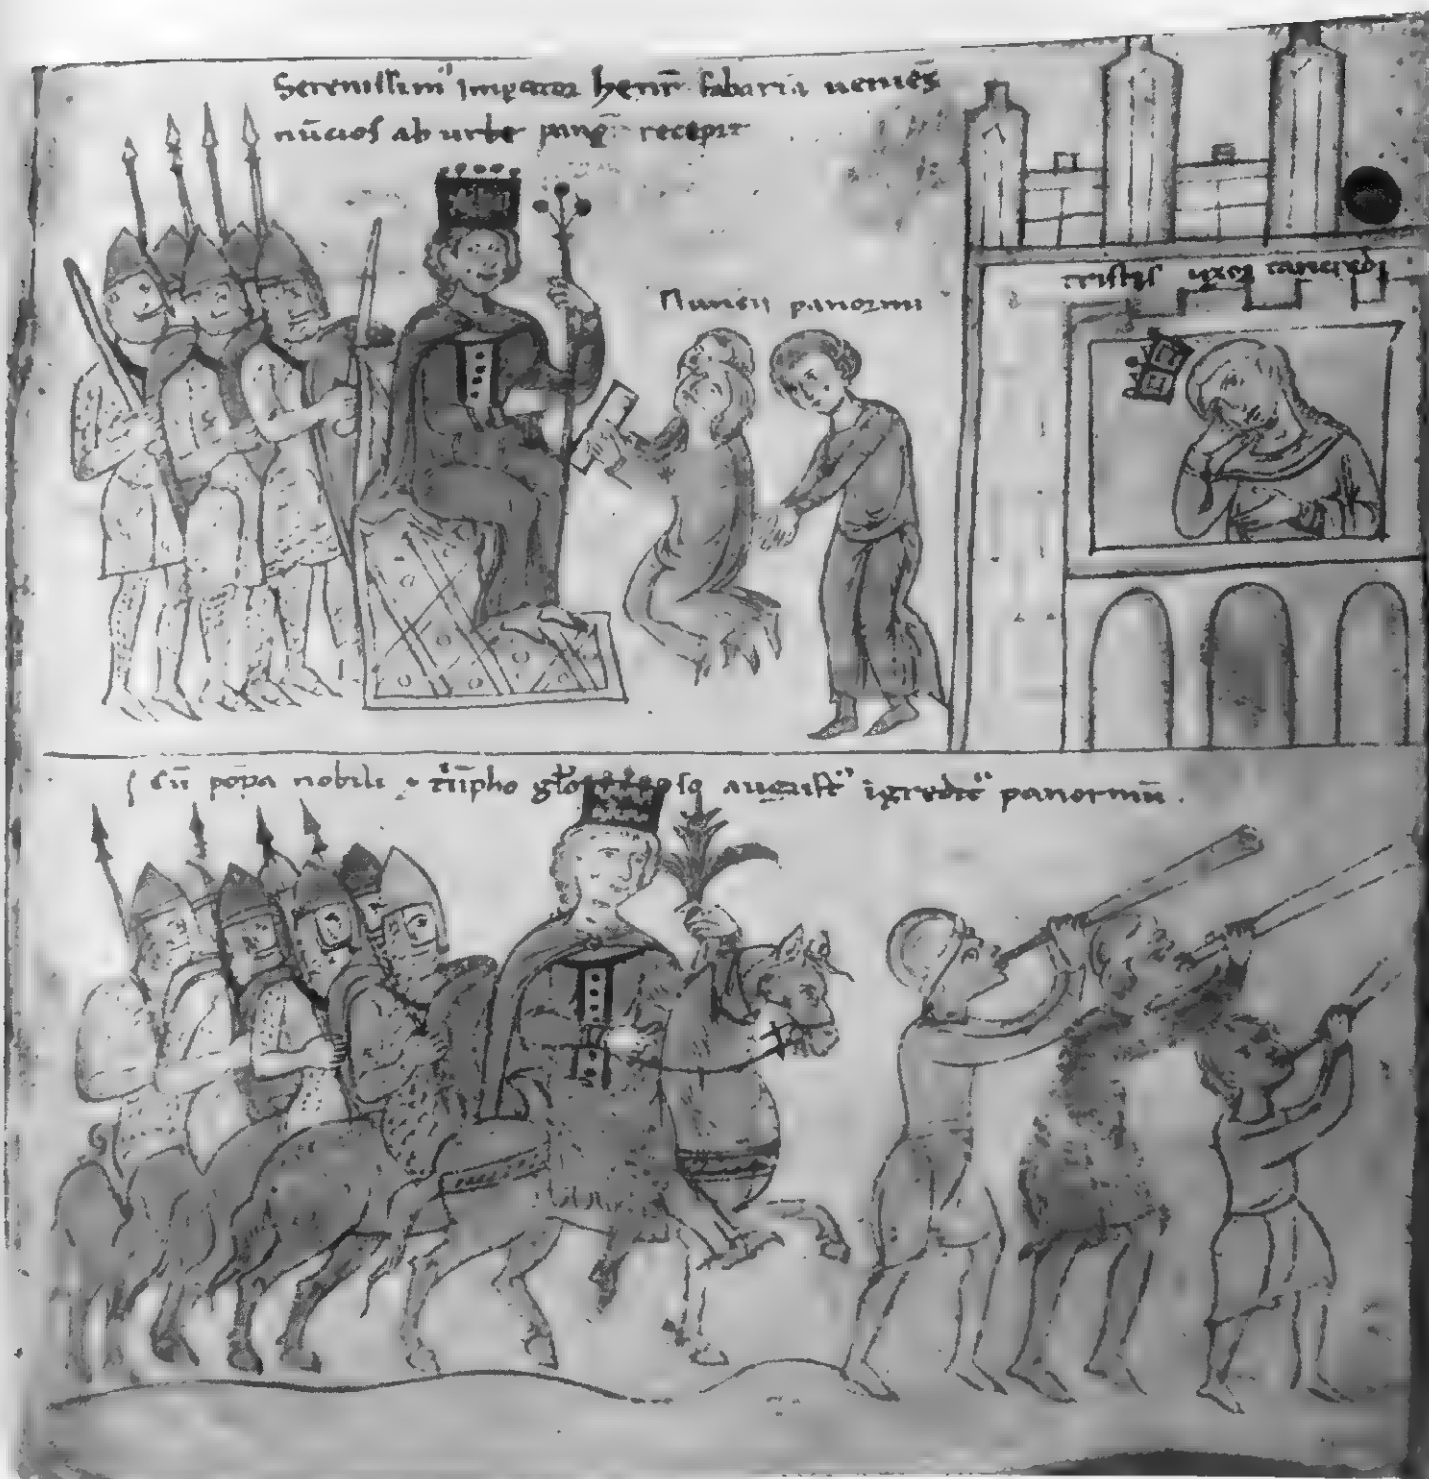 Serenissim' imperator henr̄ fabaria veniēs
nūcios ab urbe panor̄ recepit
Nuncii panormi
tristis uxor tancredi
Cū pōpa nobili tⁱūpho glo so august' īgredit' panormū.